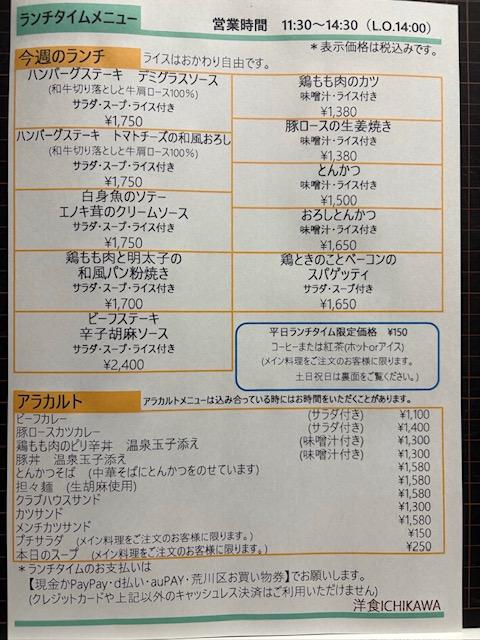 ランチタイムメニュー
営業時間　11:30～14:30（L.O.14:00）
＊表示価格は税込みです。
今週のランチ　ライスはおかわり自由です。
ハンバーグステーキ　デミグラスソース
(和牛切り落としと牛肩ロース100％)
サラダ・スープ・ライス付き
¥1,750
ハンバーグステーキ　トマトチーズの和風おろし
(和牛切り落としと牛肩ロース100％)
サラダ・スープ・ライス付き
¥1,750
白身魚のソテー
エノキ茸のクリームソース
サラダ・スープ・ライス付き
¥1,750
鶏もも肉と明太子の
和風パン粉焼き
サラダ・スープ・ライス付き
¥1,700
ビーフステーキ
辛子胡麻ソース
サラダ・スープ・ライス付き
¥2,400
鶏もも肉のカツ
味噌汁・ライス付き
¥1,380
豚ロースの生姜焼き
味噌汁・ライス付き
¥1,380
とんかつ
味噌汁・ライス付き
¥1,500
おろしとんかつ
味噌汁・ライス付き
¥1,650
鶏ときのことベーコンの
スパゲッティ
サラダ・スープ付き
¥1,650
平日ランチタイム限定価格　¥150
コーヒーまたは紅茶(ホットorアイス)
(メイン料理をご注文のお客様に限ります。
土日祝日は裏面をご覧ください。)
アラカルト　アラカルトメニューは込み合っている時にはお時間をいただくことがあります。
ビーフカレー　(サラダ付き)　¥1,100
豚ロースカツカレー　(サラダ付き)　¥1,400
鶏もも肉のピリ辛丼　温泉玉子添え　(味噌汁付き)　¥1,300
豚丼　温泉玉子添え　(味噌汁付き)　¥1,300
とんかつそば　(中華そばにとんかつをのせています)　¥1,580
担々麺　(生胡麻使用)　¥1,580
クラブハウスサンド　¥1,580
カツサンド　¥1,300
メンチカツサンド　¥1,580
プチサラダ　(メイン料理をご注文のお客様に限ります。)　¥150
本日のスープ　(メイン料理をご注文のお客様に限ります。)　¥250
＊ランチタイムのお支払いは
【現金かPayPay・d払い・auPAY・荒川区お買い物券】でお願いします。
(クレジットカードや上記以外のキャッシュレス決済はご利用いただけません)
洋食ICHIKAWA